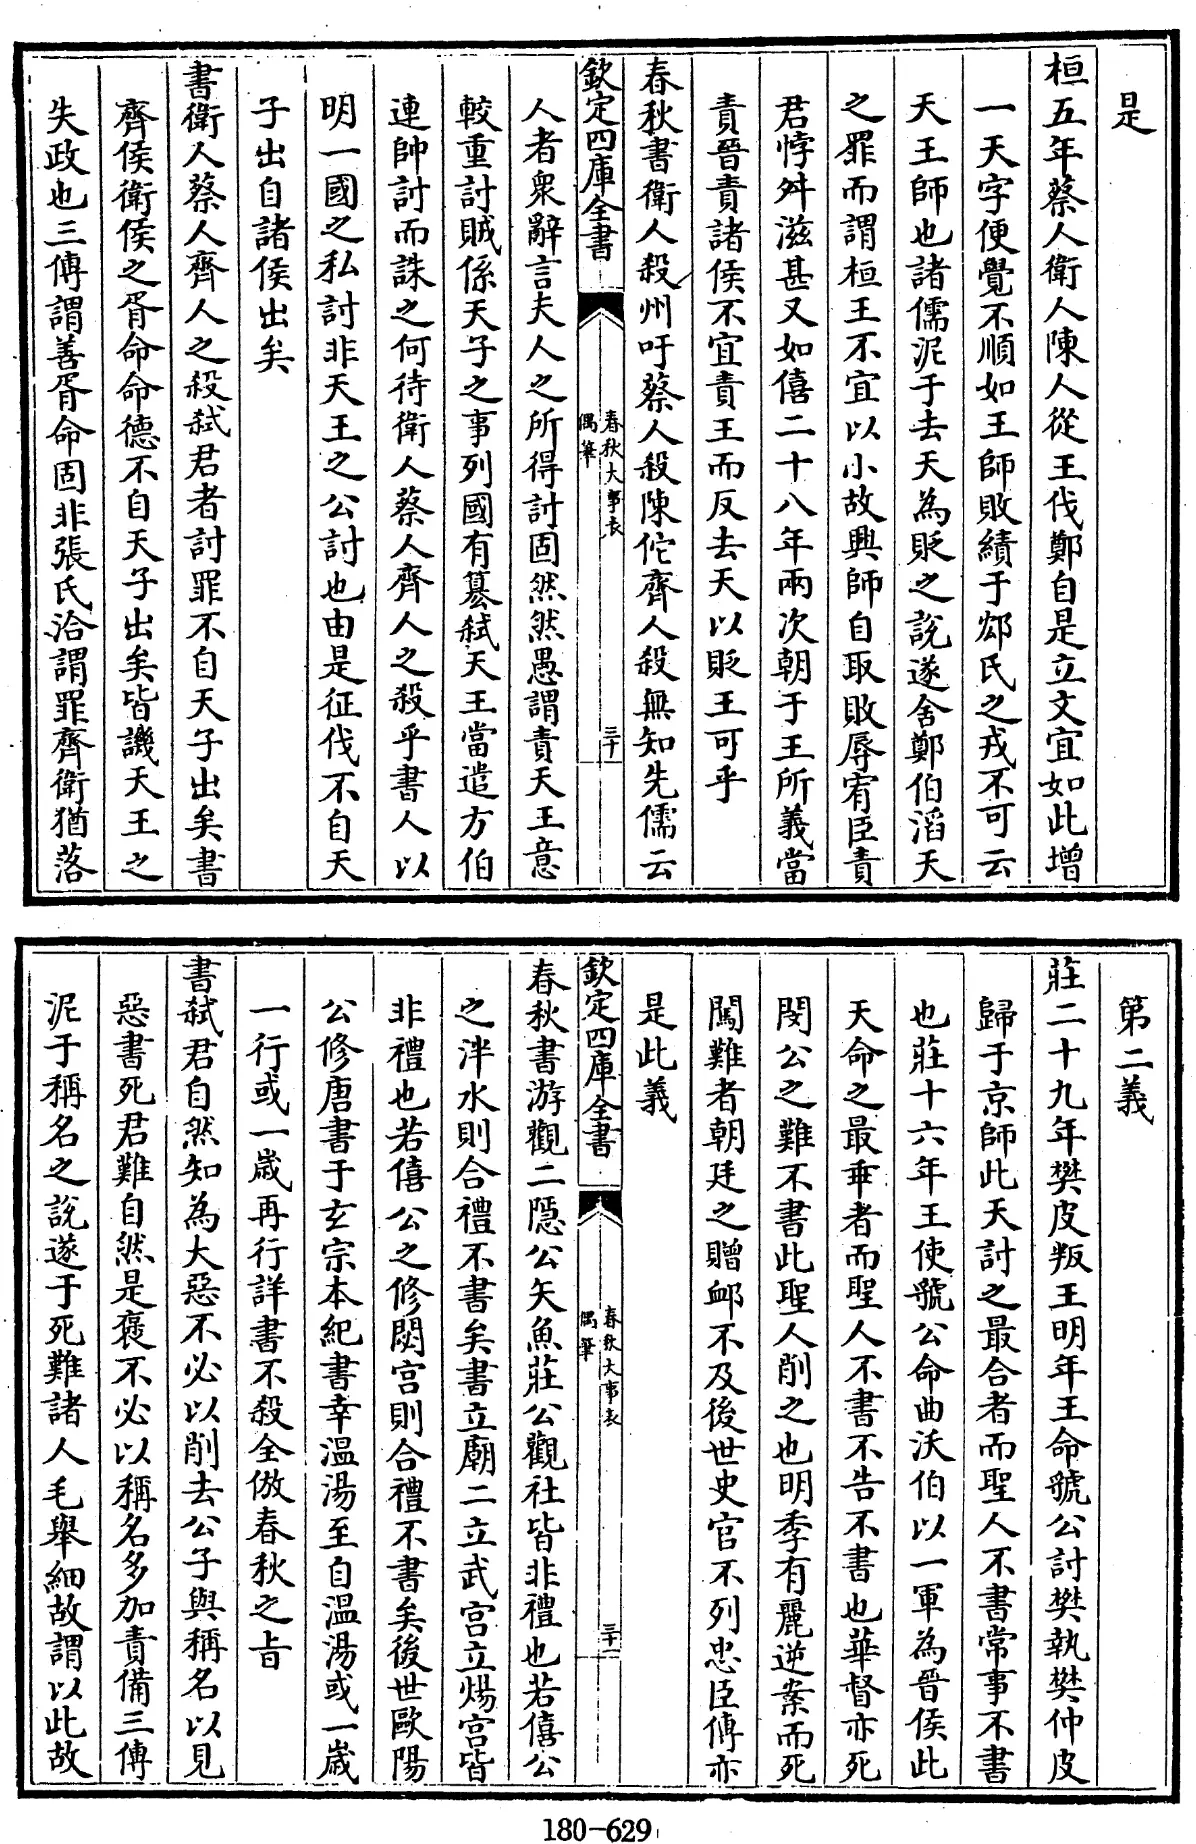 是
桓五年蔡人衛人陳人從王伐鄭自是立文宜如此增
一天字便覺不順如王師敗績于郯氏之戎不可云
天王師也諸儒泥于去天為貶之說遂舍鄭伯滔天
之罪而謂桓王不宜以小故興師自取敗辱宥臣責
君悖舛滋甚又如僖二十八年兩次朝于王所義當
責晉責諸侯不宜責王而反去天以貶王可乎
春秋書衛人殺州吁蔡人殺陳佗齊人殺無知先儒云
欽定四庫全書
春秋大事表
偶筆
三十
人者衆辭言夫人之所得討固然然愚謂責天王意
較重討賊係天子之事列國有簒弑天王當遣方伯
連帥討而誅之何待衛人蔡人齊人之殺乎書人以
明一國之私討非天王之公討也由是征伐不自天
子出自諸侯出矣
書衛人蔡人齊人之殺弑君者討罪不自天子出矣書
齊侯衛侯之胥命命德不自天子出矣皆譏天王之
失政也三傳謂善胥命固非張氏洽謂罪齊衛猶落
第二義
莊二十九年樊皮叛王明年王命虢公討樊執樊仲皮
歸于京師此天討之最合者而聖人不書常事不書
也莊十六年王使虢公命曲沃伯以一軍為晉侯此
天命之最乖者而聖人不書不告不書也華督亦死
閔公之難不書此聖人削之也明季有麗逆案而死
闖難者朝廷之贈卹不及後世史官不列忠臣傳亦
是此義
欽定四庫全書
春秋大事表
偶筆
三十一
春秋書游觀二隱公矢魚莊公觀社皆非禮也若僖公
之泮水則合禮不書矣書立廟二立武宫立煬宫皆
非禮也若僖公之修閟宫則合禮不書矣後世歐陽
公修唐書于玄宗本紀書幸温湯至自温湯或一歲
一行或一歲再行詳書不殺全倣春秋之旨
書弑君自然知為大惡不必以削去公子與稱名以見
惡書死君難自然是褒不必以稱名多加責備三傳
泥于稱名之說遂于死難諸人毛舉細故謂以此故
180-629